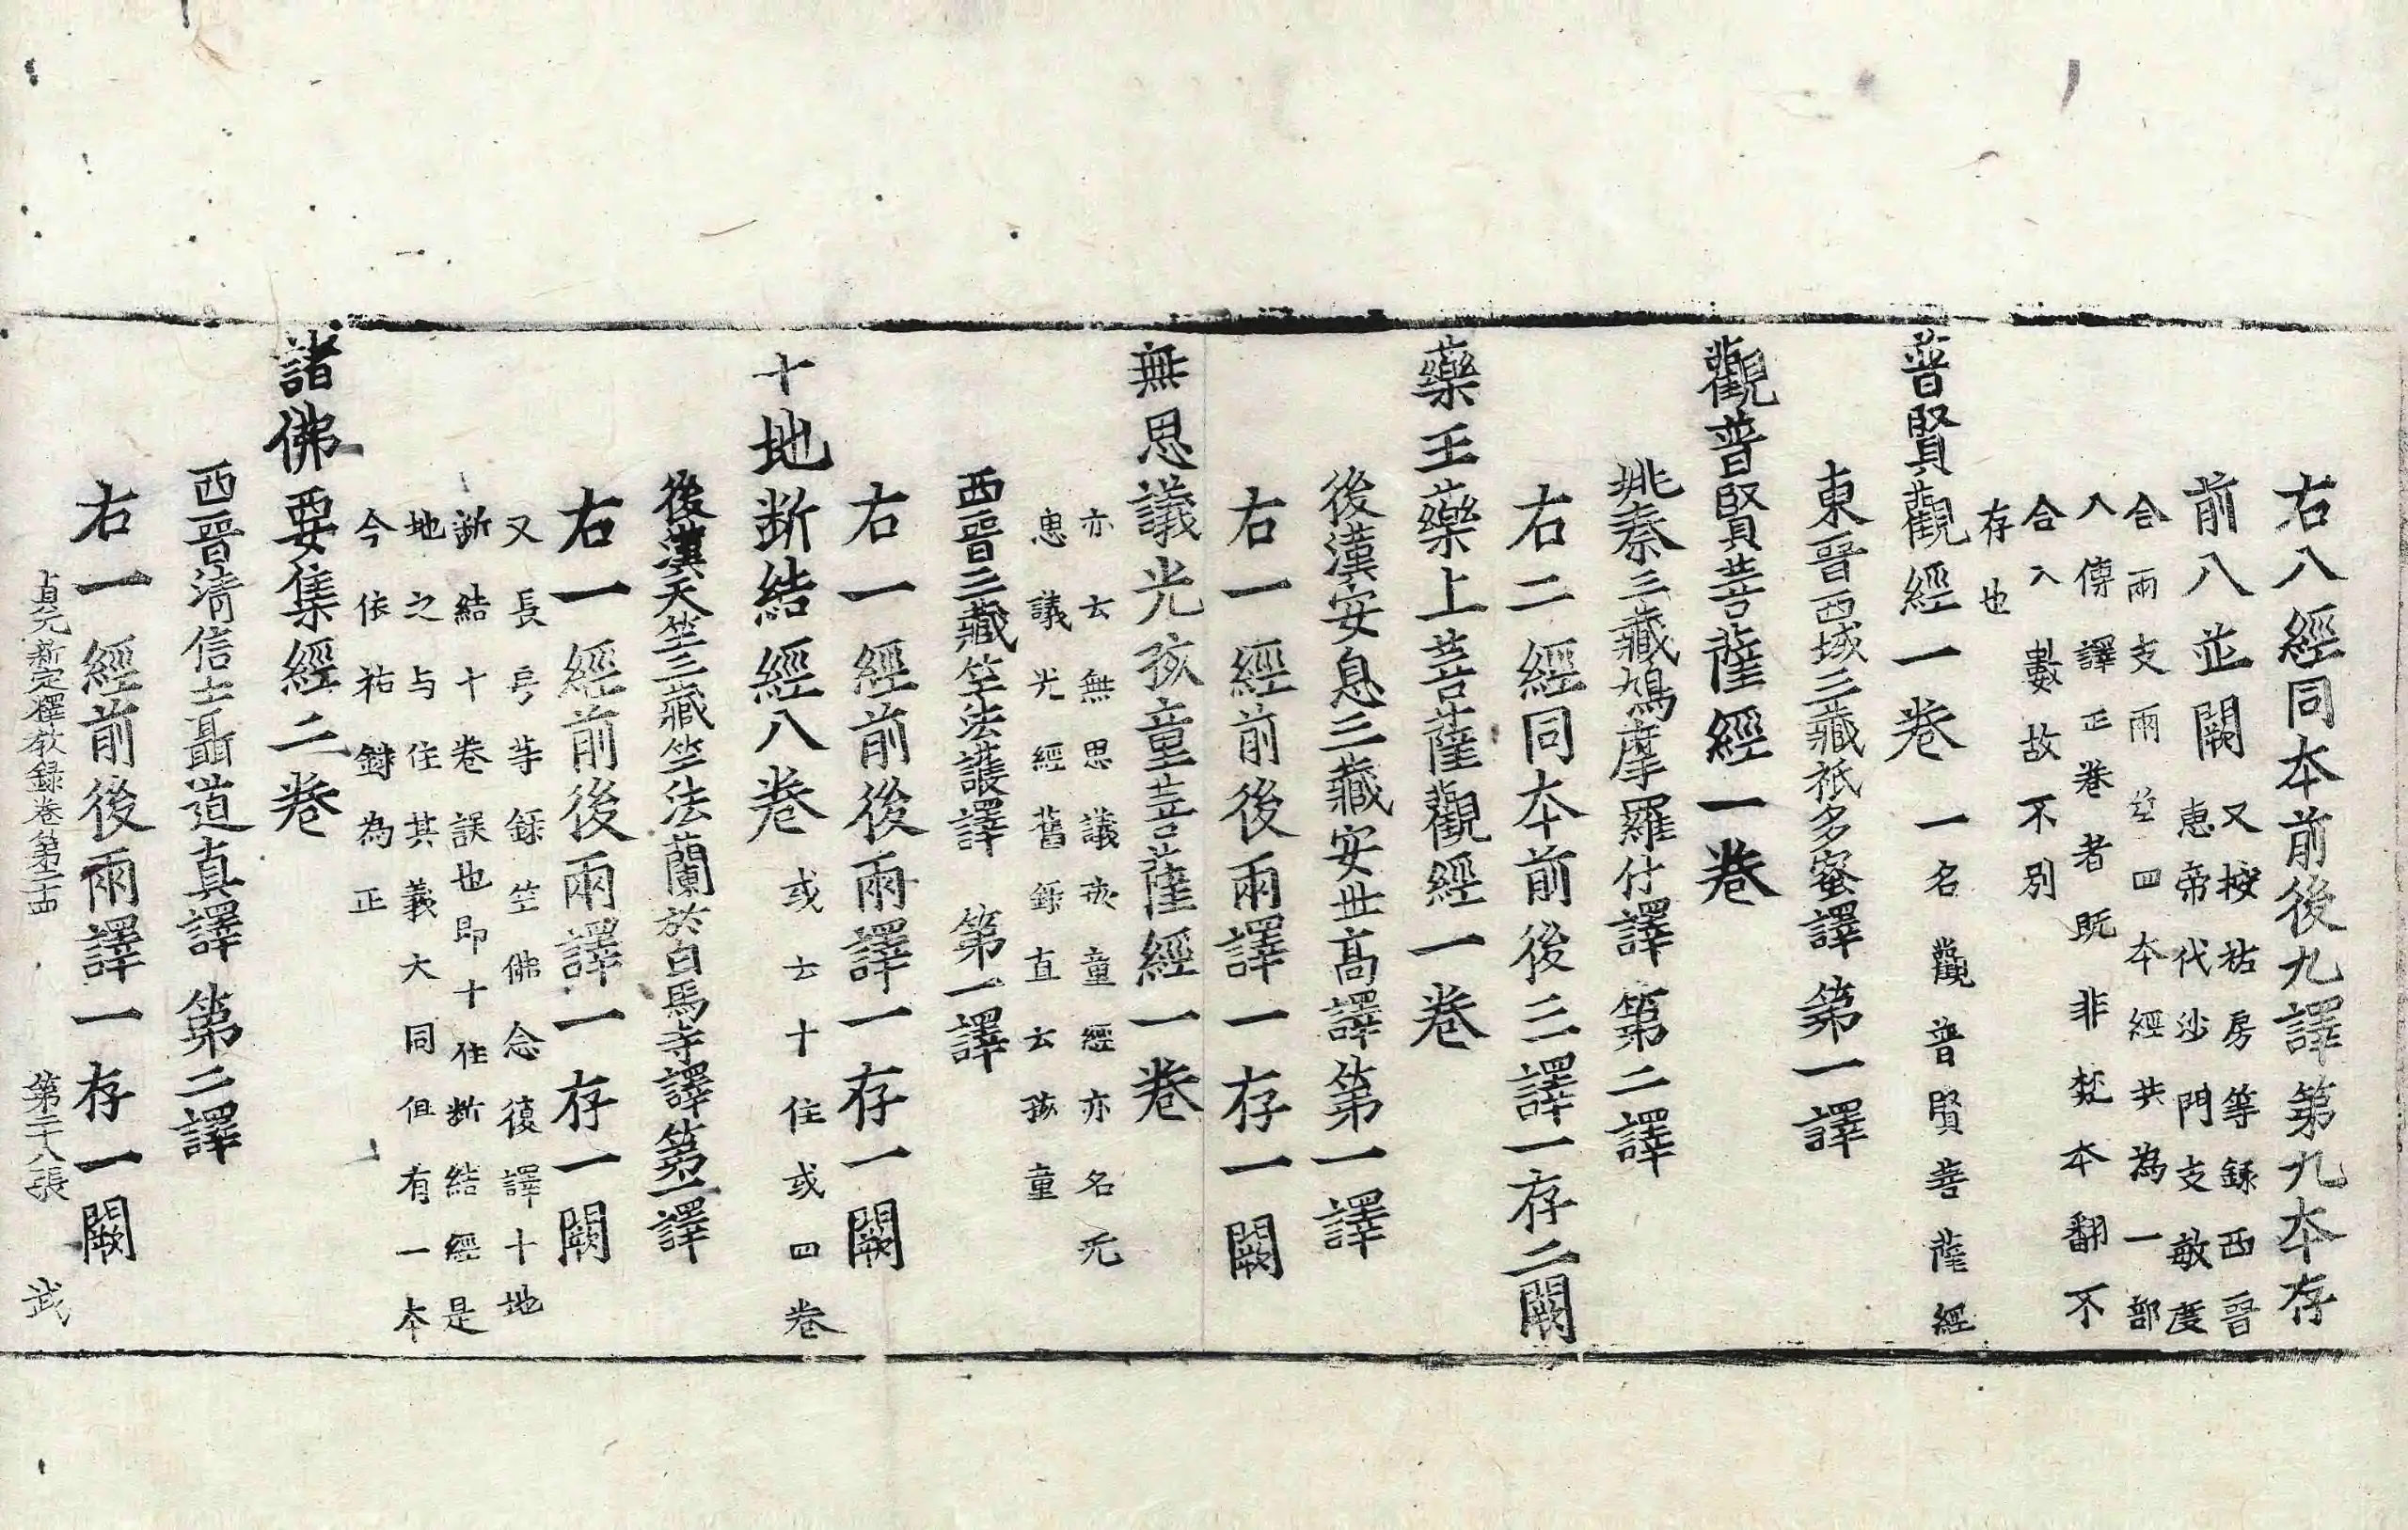 右八經同本前後九譯第九本存
前八並闕又按祐房等録西晉
惠帝代沙門支敏度
合兩支兩竺四本經共為一部
入傳譯正卷者既非梵本翻不
合入數故不別
存也
普賢觀經一卷一名觀普賢菩薩經
東晉西域三藏祇多蜜譯第一譯
觀普賢菩薩經一卷
姚秦三藏鳩摩羅什譯第二譯
右二經同本前後三譯一存二闕
藥王藥上菩薩觀經一卷
後漢安息三藏安世高譯第一譯
右一經前後兩譯一存一闕
無思議光孩童菩薩經一卷
亦云無思議孩童經亦名无
思議光經舊録直云孩童
西晉三藏竺法護譯第一譯
右一經前後兩譯一存一闕
十地断結經八卷或云十住或四卷
後漢天竺三藏竺法蘭於白馬寺譯第一譯
右一經前後兩譯一存一闕
又長房等録竺佛念復譯十地
断結十卷誤也即十住断結經是
地之与住其義大同但有一本
今依祐録為正
諸佛要集經二卷
西晉清信士聶道真譯第二譯
右一經前後兩譯一存一闕
貞元新定釋教録卷第二十四 第二十八張 武